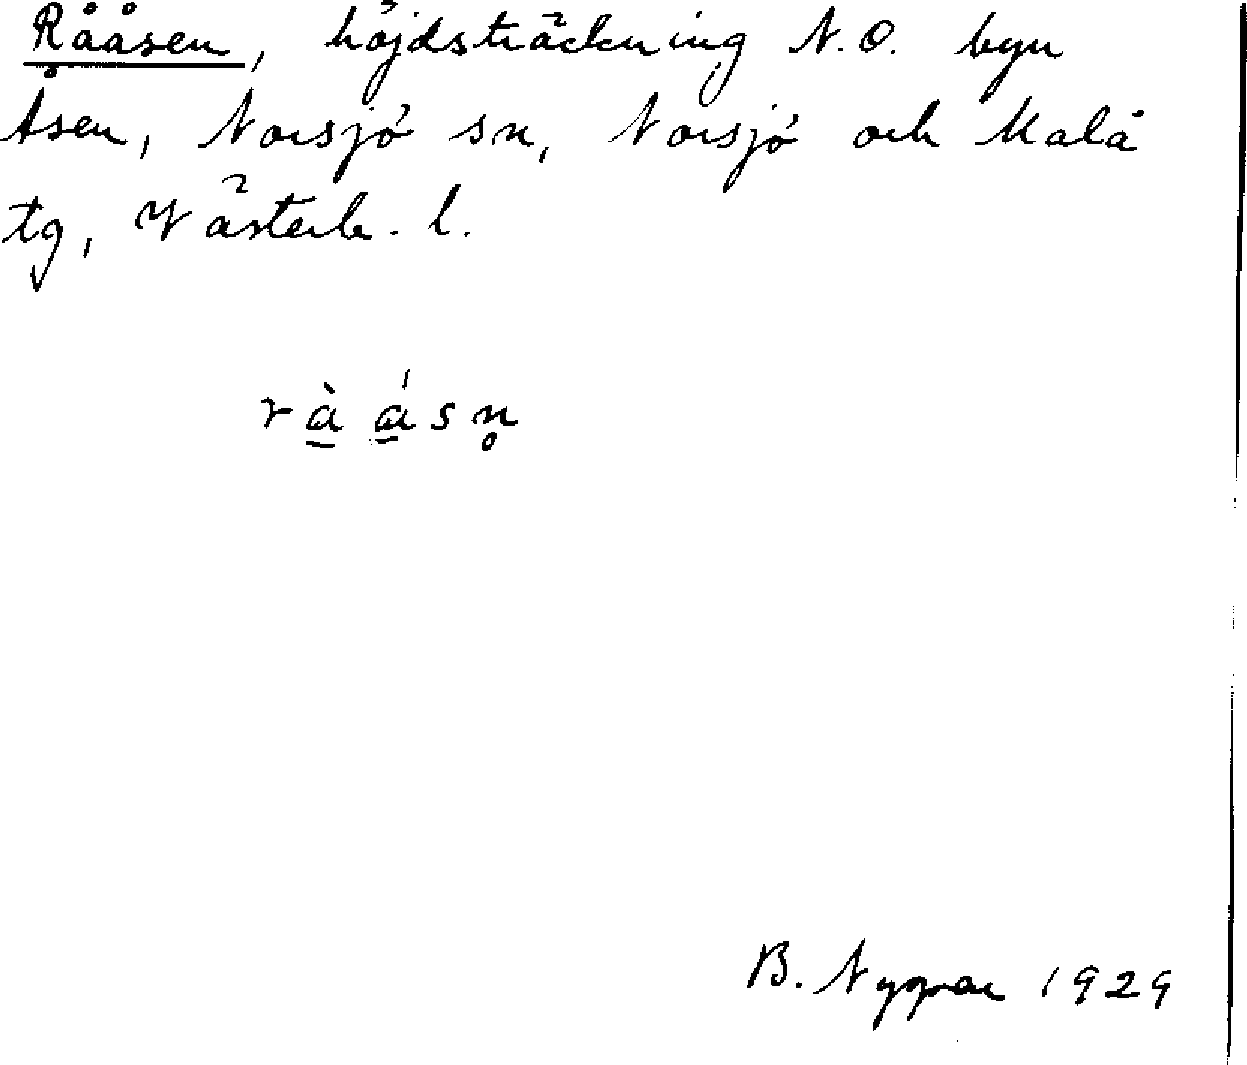 Rååsen, höjdsträckning N.O. byn
Åsen, Norsjö sn, Norsjö och Malå
tg, Västerb. l.
rà̱ á̱sn̥
B. Nygren 1929